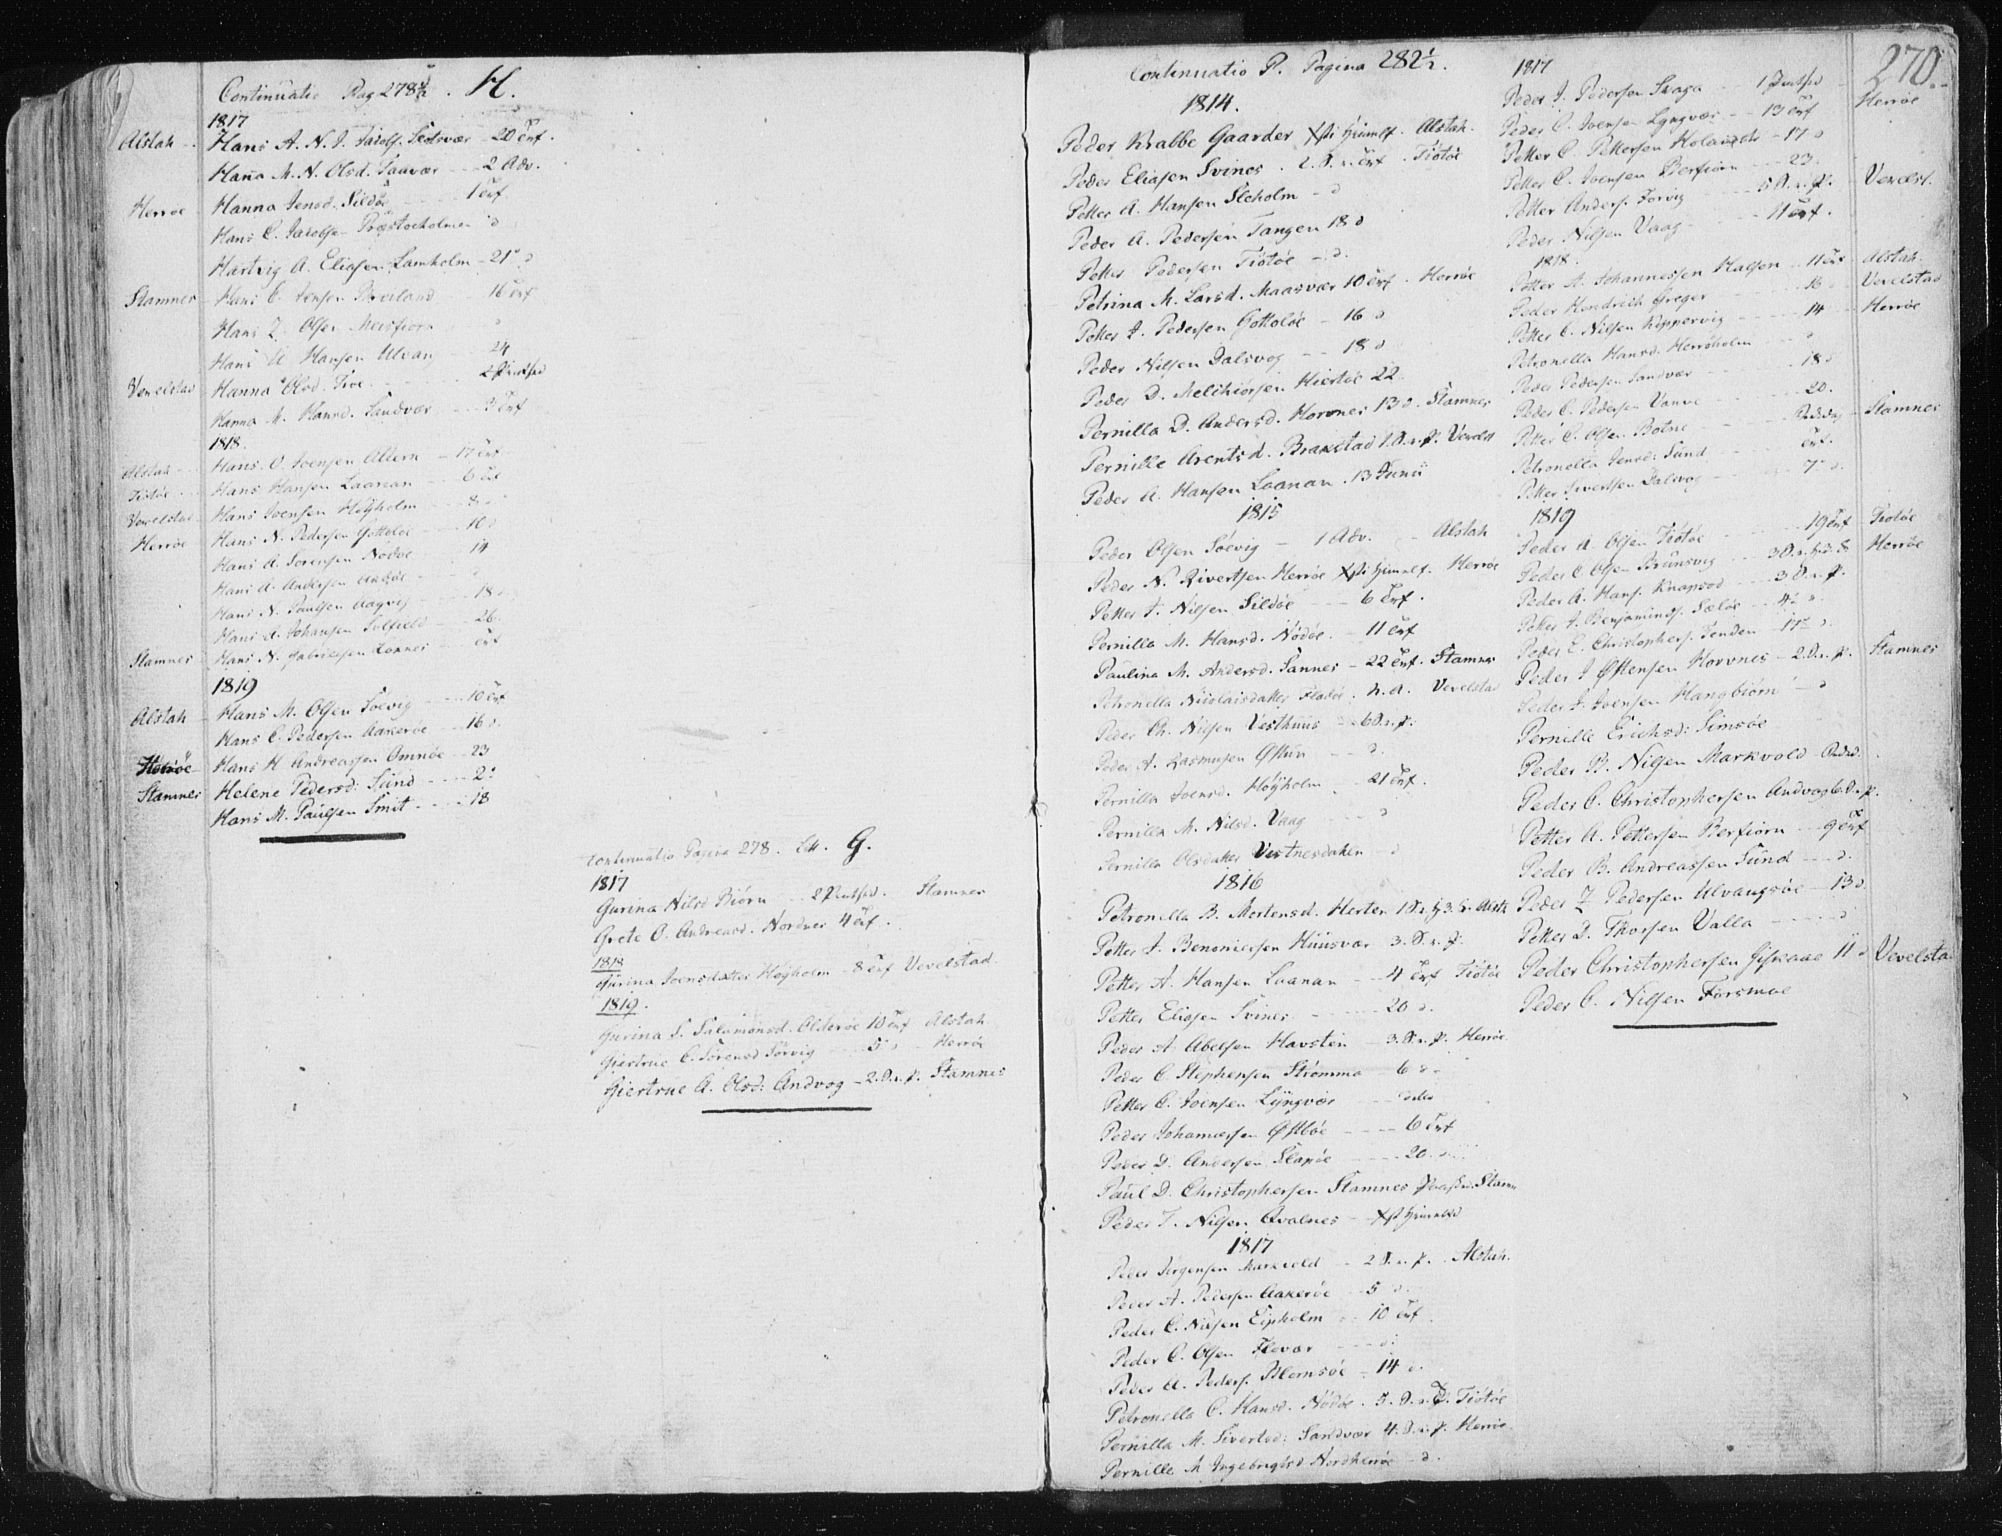 Continuatio Pag 278½ . H.
1817
Alstah - Hans A. N. J. Jacobs. Teistsvær - 20 Trf.
Hana M. N. Olsd. Saavær - - - 2 Adv.
Herrøe Hanna Jensd. Sildøe - - - 1 Trf
Hans C. Jacobsen Præstocholmen d
Hartvig A. Eliasen Lamholm - 21 d
Stamnes Hans C. Jensen - 16 Trf
Hans Z. Olsen Meisfiorn d
Hans A Hansen Ulvan 24
Vevelstad Hanna Olsd. Tioe
Hanna M. Hansd. Sandvær - - 3 Trf
1818.
Alstah - Hans O. Joensen Altern - 17 Trf
Tiøtøe Hans Hansen Laanan - - 6 Trf
Vevelstad Hans Joensen Høyholm - - 8 d
Herrøe Hans N. Pedersen Gottoløe - - 10 d
Hans A. Sorensen Nodøe 14
Hans A. Andersen
Hans N. Paulsen Aagvig - - 18 d
Hans A. Johansen Solfield - - 26.
Stamnes Hans N. Gabrielsen - Trf
1819
Alstah - Hans M. Olsen Soevig - - - 10 Trf
Hans C. Pedersen Aakerøe - - 16 d.
Herrøe Hans H Andreassen Omnøe - 23
Stamnes Helene Pedersd: Sund - - - - 2
Hans M. Paulsen Smit - - - - 18
Continuatio Pagina 278. Litt. G.
1817
Gurina Nilsd Biørn - - 2 Stamnes
Grete O. Andreasd. Nordnes 4 Trf.
1818
Gurina Joensdatter Høyholm - 8 Trf Vevelstad.
1819.
Gurina S. Salamonsd. Olderøe 10 Trf Alstah
Giertrue C. Sørensd Sørvig - - - 5 d - Herrøe
Giertrue A. Olsd: Andvog - 2. S. n. p. Stamnes
270.
Continuatio P. Pagina 282½.
1814.
Peder Krabbe Gaarder Xsti himmelf. Alstah.
Peder Eliasen Svines . 2. S. n. Trf . Tiøtøe
Petter A. Hansen Sleholm - d
Peder A. Pedersen Tangen 18 d
Petter Pedersen Tiøtøe - d.
Petrina M. Larsd. Maasvær 10 Trf . Herrøe
Petter J. Pedersen Gottoløe - 16 d
Peder Nilsen Dalsvog - - 18 d
Peder D. Melchiorsen Hiertøe 22
Pernilla D. Andersd. Hornnes 13 d. Stamnes
Pernille Arentsd. Brakstad 1. S. n. p. Vevelst
Peder A. Hansen Laanan . 13 Junii
1815
Peder Olsen Søevig - 1 Adv. - Alstah
Peder N. Sivertsen Herrøe Xsti himmelf. Herrøe
Petter J. Nilsen Sildøe - - 6 Trf.
Pernilla M. Hansd. Nødøe. - 11 Trf
Paulina M. Andersd. Sannes - 22 Trf. Stamnes
Petronella Nicolaisdatter Fladøe . n. a. Vevelstad
Peder Ch. Nilsen Vesthuus - 6 S. n. p.
Peder A. Rasmusen - - d.
Pernilla Joensd. Høyholm - - 21 Trf.
Pernilla M. Nilsd. Vaag - - d
Pernilla Olsdatter Vestnesdahlen - d
1816
Petronella B. Mortensd. Herten
Petter J. Benoniassen Huusvær 3. S. n. p.
Petter A. Hansen Laanan - - 4 Trf Tiøtøe
Petter Eliasen Svines - - - - 20 d.
Peder A Abelsen Havsten - 3. S. n. p. Herrøe
Peder C. Stephensen Strømma - 6 d -
Petter C. Joensen Lyngvær - - dito
Peder Johannessen Østbøe - - - 6 Trf
Peder D. Andersen Slapøe - - - 20. d.
Paul D. Christophersen Stamnes
Peder T. Nilsen Qvalnes - Xsti himmelfd
1817
Peder Jørgensen Markvold - 2 S. n. p. . Alstah.
Peder A. Pedersen Aakerøe - 5 d.
Peder C. Nilsen Eipholm - - 10 Trf.
Peder C. Olsen Flevær - - - d.
Peder A. Peders. Blomsøe - 14 d.
Petronella C. Hansd. Nødøe . 5. S. n. T. Tiøtøe
Pernilla M. Sivertsd: Sandvær 4. S. n. p. Herrøe
Pernille M Ingebrigtsd Nordherrøe - d.
1817
Peder J. Pedersen Skaga - 1
Peder C. Joensen Lyngvær - - 13 Trf Herrøe
Petter C. Pettersen - 17 d
Petter C. Joensen Berfiorn - - - 23.
Petter Anders. Forvig - - - 5 S. n. p. - Vevelst.
Peder Nilsen Vaag - - - 11 Trf.
1818.
Petter A. Johannessen Halsen - 11 Trf - Alstah.
Peder Hendrich Greger - - - 16 d Vevelstad
Petter C. Nilsen Kippervig - - - 14 - Herrøe
Petronella Hansd. Herrøholm - - d
Peder Pedersen Sandvær - - - 18 d
Peder C. Pedersen - - - 20.
Petter C. Olsen Botne - - - Stamnes
Petronella Jensd: Sund - - - Trf.
Petter Sivertsen Dalsvog - - - 7 d.
1819
Peder A. Olsen Tiøtøe - - - 19 Trf Tiøtøe
Peder C Olsen Brunsvig - - Herrøe
Peder A. Hans. Knapsod - - - 3 S. n. p.
Petter J. Benjamins. Sæløe - - 4 d.
Peder E. Christophers. Tenden - 17 d.
Peder J Østensen Horvnes - 2. S. n. p. Stamnes
Peder J. Joensen Hangbiorn - d
Pernille Erichsd: Simsøe
Peder B. Nilsen Markvold
Peder C. Christophersen Andvog 6. S. n. p.
Petter A. Pettersen Berfiorn - - 9 Trf
Peder B. Andreassen Sund - - - d.
Peder Z Pedersen Ulvangsøe - 13 d.
Petter D. Thorsen Valla - - - d
Peder Christophersen 11 d Vevelsta
Peder C. Nilsen Forsmoe